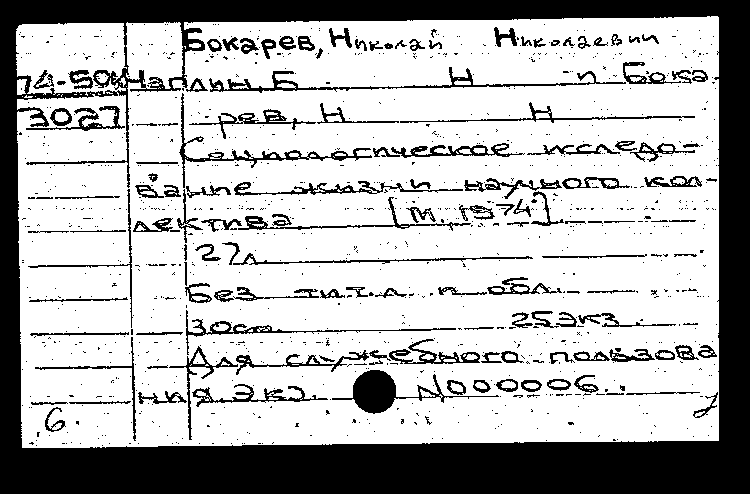 Бокарев, Николай Николаевич
74-50к Чаплин, Б Н и Бока-
3027 рев, Н Н
Социологическое исследо-
вание жизни научного кол-
лектива [М. 1974].
27л.
Без тит.л и обл.
30см. 25экз.
Для служебного пользова
ния. Экз. N000006.
6.